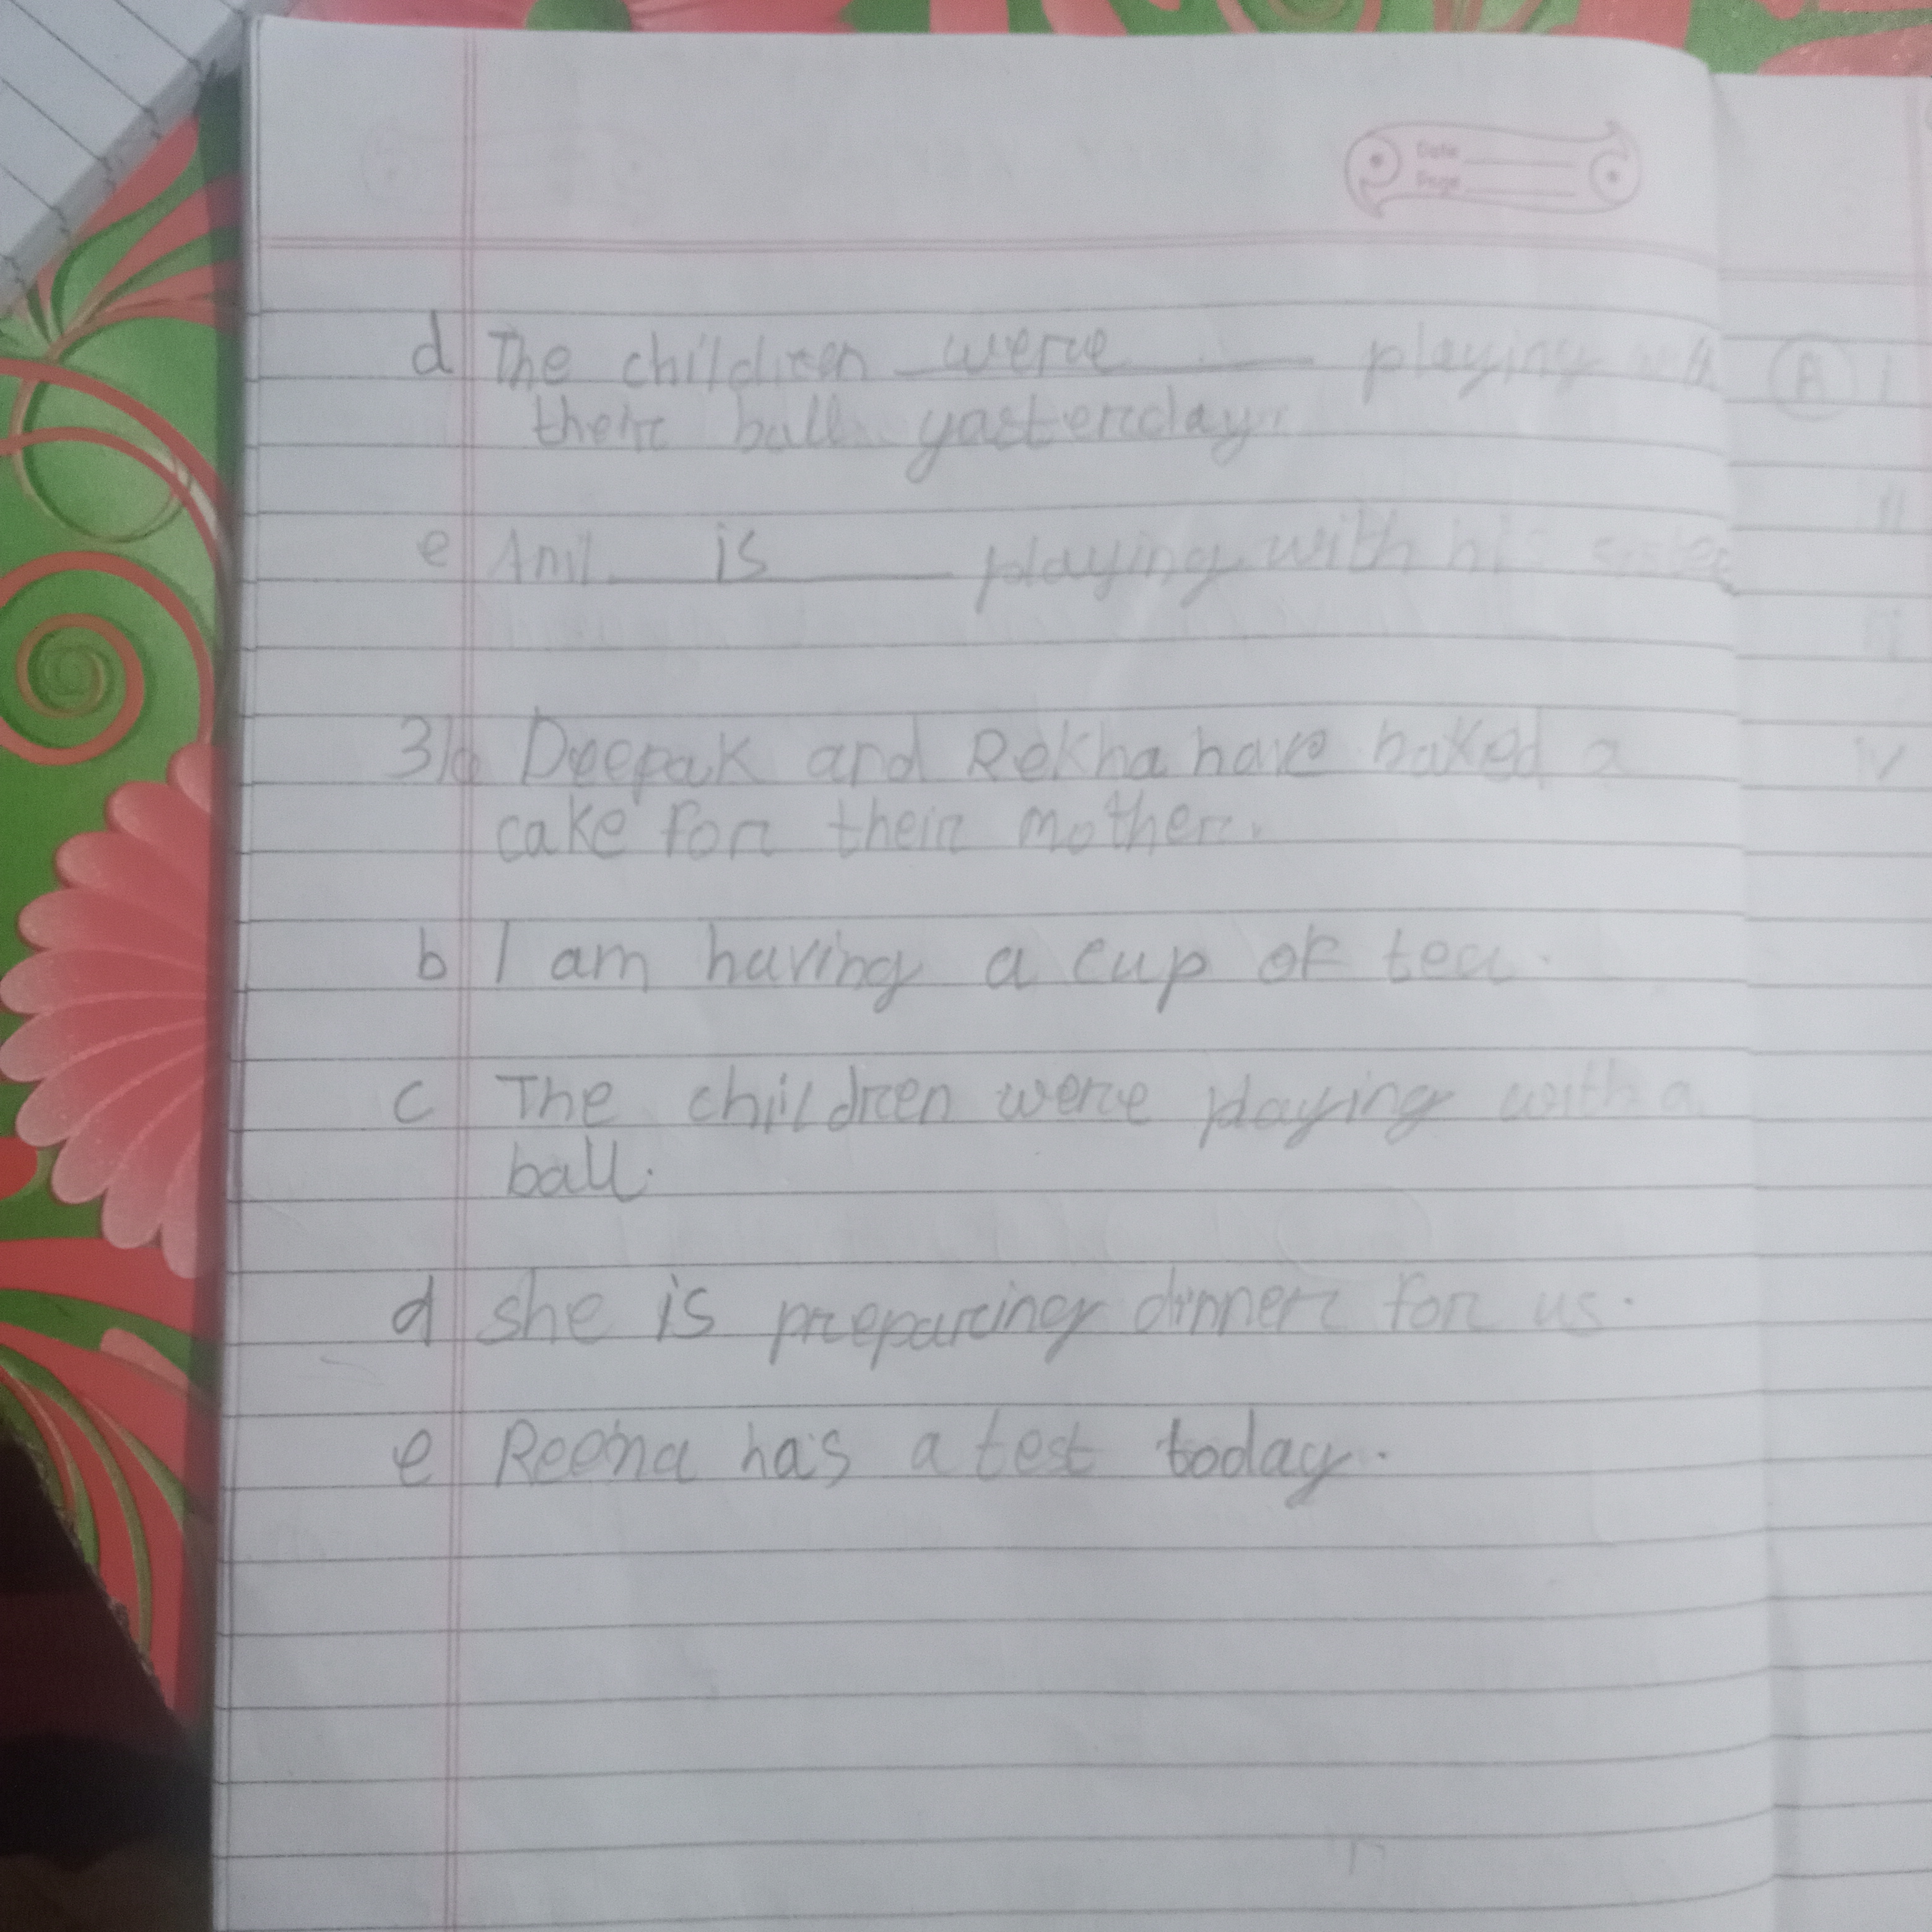 Date
Page
d The children were playing with
their ball yasterday.
e Anil is playing with his sister
3/a Deepak and Rekha have baked a
cake for their mother.
b I am having a cup of tea.
c The chilldren were playing with a
ball.
d she is preparing dinner for us.
e Reena has a test today.
A i
ii
iii
iv